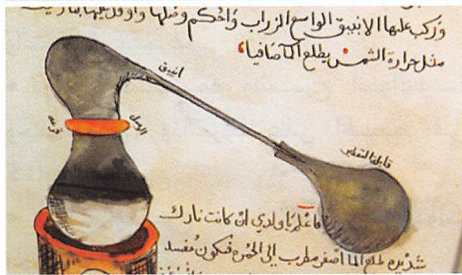 وركب عليها الانبيق الواسع الزراب واحكم وصلها واوقد عليها نار
مثل حرارة الشمس يطلع الما صافيا
انبيق
الوصل
قابلة التقطير
فاعلم يا ولدي ان كانت نارك
شديده طلع الما اصفر مطرب الى الحمره فيكون مفسد